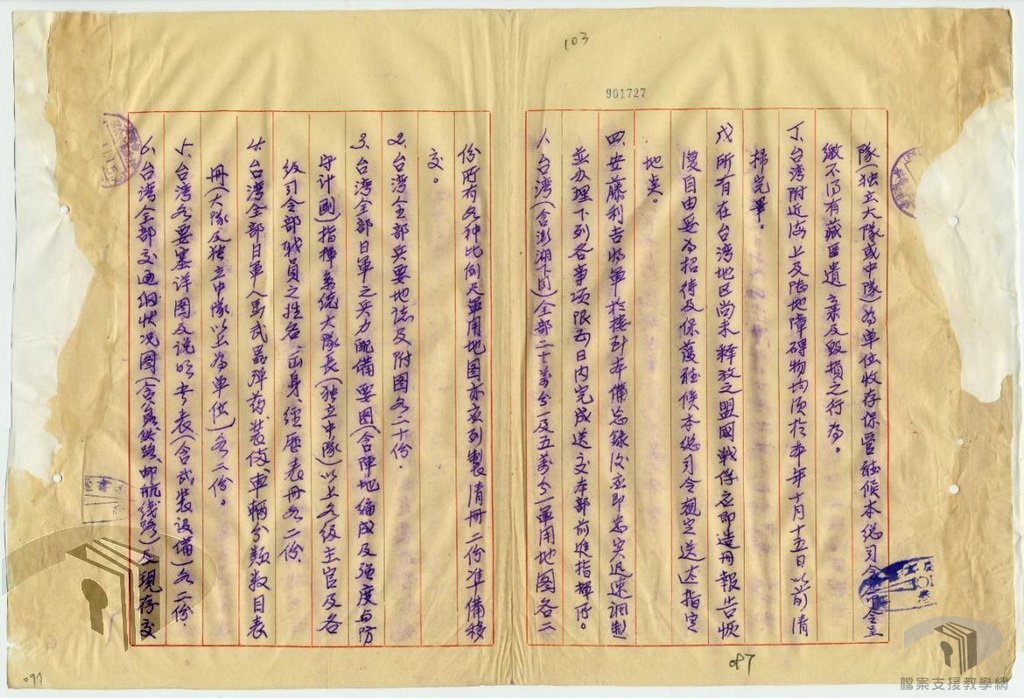 103
901727
隊(独立大隊或中隊)為单位收存保管听候本总司令
繳不得有藏匿遺棄及毀損之行為。
丁、台湾附近海上及陆地障碍物均須於本年十月十五日以前清
掃完畢。
戊、所有在台湾地区尚未释放之盟國战俘立即造册報告恢
復自由妥为招待及保護听候本总司令規定送达指定
地奌。
四、安藤利吉將軍於接到本備忘錄後立即忠实迅速調製
並办理下列各事項限两日内完成送交本部前進指揮所。
1、台湾(含澎湖下同)全部二十万分一及五万分一軍用地图各二
份所有各种比例尺軍用地图亦应列製清册二份准備移
交。
2、台湾全部兵要地誌及附图各二十份.
3、台湾全部日軍之兵力配備要图(含陣地編成及强度与防
守計劃)指揮系統大隊長(独立中隊)以上各级主官及各
级司令部职員之姓名、出身、經歷表册各二份.
4、台湾全部日軍人馬武器弹药装俻車輛分類数目表
册(大隊及独立中隊以上為单位)各二份。
5、台湾各要塞详图及说明书表(含武装设備)各二份.
6、台湾全部交通網状况图(含公路铁路邮航线路)及現存交
087
091
檔案支援教學網